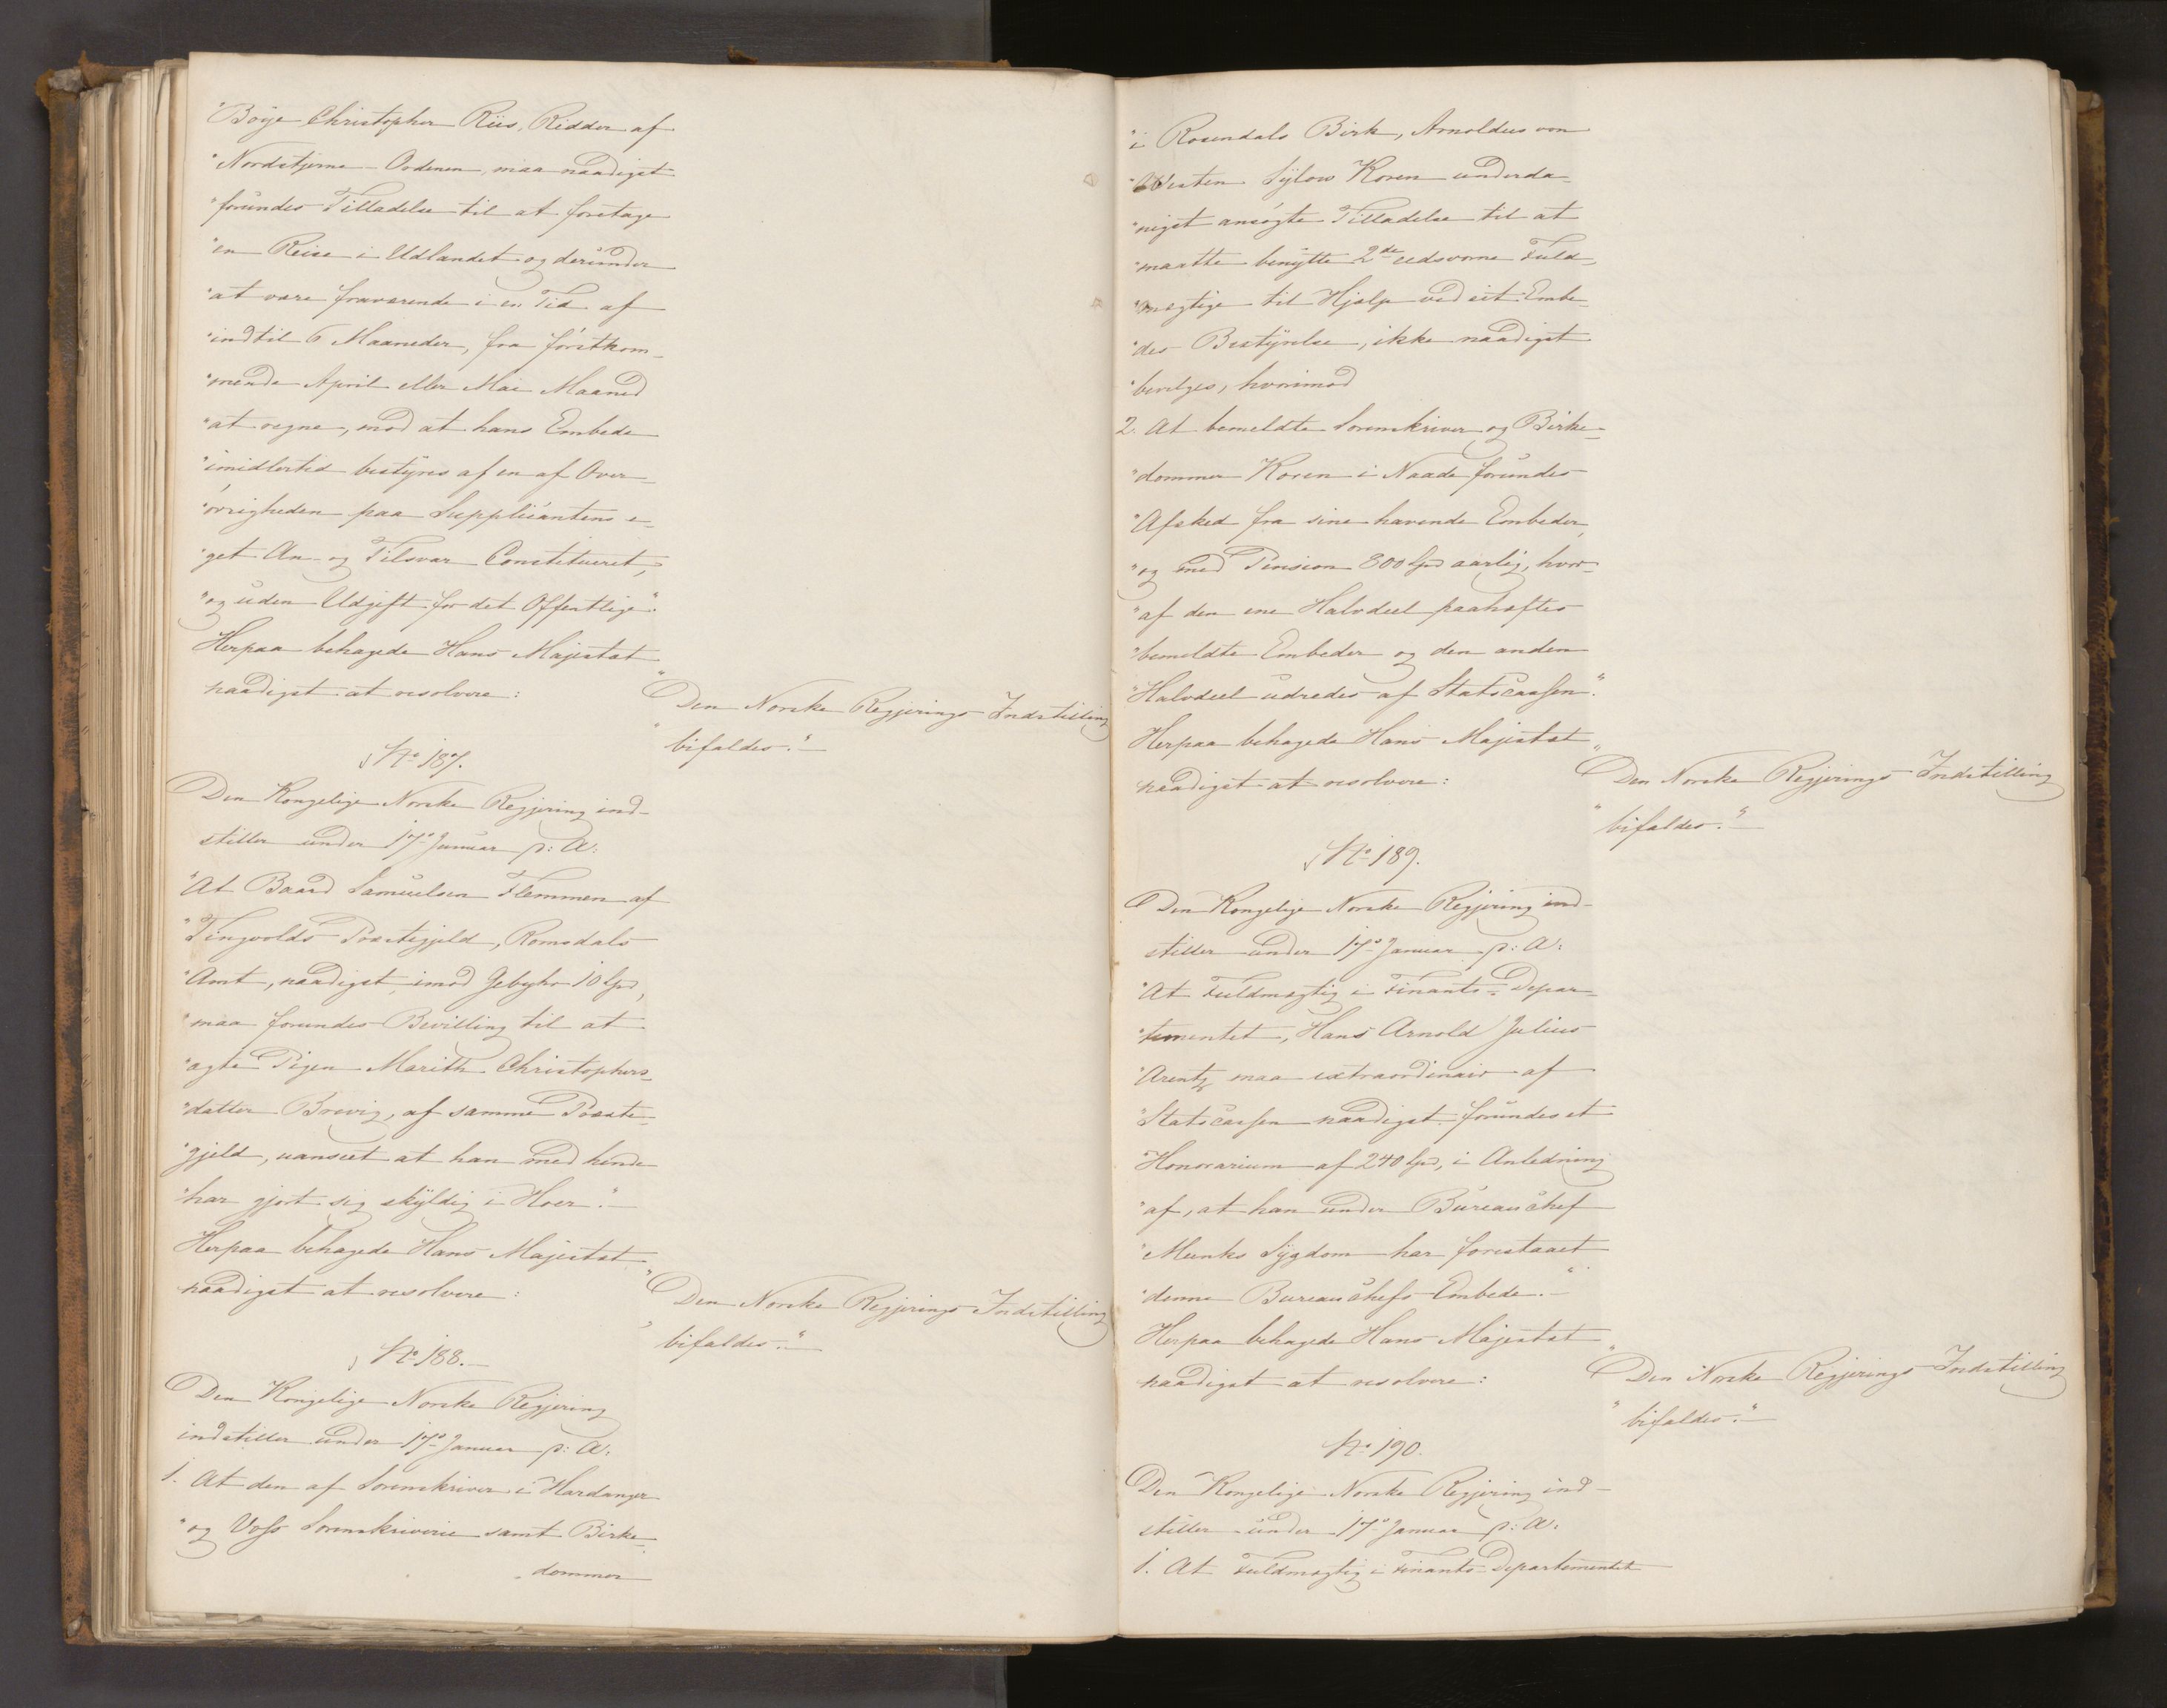 "Böye Christopher Riis, Ridder af
"Nordstjerne-Ordenen, maa naadigst
"forundes Tilladelse til at foretage
"en Reise i Udlandet og derunder
"at være fraværende i en Tid af
"indtil 6 Maaneder, fra förstkom-
"mende April eller Mai Maaned
"at regne, mod at hans Embede
"imidlertid bestyres af en af Over-
"örigheden paa Supplicantens e-
"get An- og Tilsvar Constitueret,
"og uden Udgift for det Offentlige".
Herpaa behagede Hans Majestæt
naadigst at resolvere:
"Den Norske Regjerings Indstilling
"bifaldes."
No 187.
Den Kongelige Norske Regjering ind-
stiller under 17de Januar p: A:
"At Baard Samuelsen Flemmen af
"Tingvolds Præstegjeld, Romsdals
"Amt, naadigst, imod Gebyhr 10 Spd,
"maa forundes Bevilling til at
"ægte Pigen Marith Christophers-
"datter Brevig, af samme Præste-
"gjeld, uanseet at han med hende
"har gjort sig skyldig i Hoer."
Herpaa behagede Hans Majestæt
naadigst at resolvere:
"Den Norske Regjerings Indstilling
"bifaldes."
No 188.
Den Kongelige Norske Regjering
indstiller under 17de Januar p: A:
1. At den af Sorenskriver i Hardanger
"og Voss Sorenskriverie samt Birke-
dommer
"i Rosendals Birk, Arnoldus von
"Westen Sylow Koren underda-
"nigst ansögte Tilladelse til at
"maatte benytte 2de edsvorne Fuld-
"mægtige til Hjælp ved sit Embe-
"des Bestyrelse, ikke naadigst
"bevilges, hvorimod
2. At bemeldte Sorenskriver og Birke-
"dommer Koren i Naade forundes
"Afsked fra sine havende Embeder,
"og med Pension 800 Spd aarlig, hvor-
"af den ene Halvdeel paahæftes
"bemeldte Embeder og den anden
"Halvdeel udredes af Statscassen".
Herpaa behagede Hans Majestæt
naadigst at resolvere:
"Den Norske Regjerings Indstilling
"bifaldes."
No 189.
Den Kongelige Norske Regjering ind-
stiller under 17de Januar p: A:
"At Fuldmægtig i Finants-Depar-
"tementet, Hans Arnold Julius
"Arentz maa extraordinair af
"Statscassen naadigst forundes et
"Honorarium af 240 Spd, i Anledning
"af, at han under Bureauchef
"Munks Sygdom har forestaaet
"denne Bureauchefs Embede."
Herpaa behagede Hans Majestæt
naadigst at resolvere:
"Den Norske Regjerings Indstilling
"bifaldes."
No 190.
Den Kongelige Norske Regjering ind-
stiller under 17de Januar p: A:
1. At Fuldmægtig i Finants-Departementet